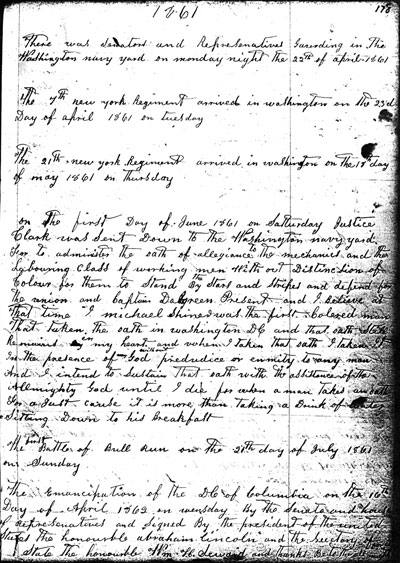 1861
178
There was Senators and Represenatives Guarding in the
Washington navy yard on monday night the 22th of april 1861
The 7th new york Regiment arrived in washington on the 23d
Day of april 1861 on tuesday
The 21th new york Regiment arrived in washington on the day
of may 1861 on thursday
on The first Day of June 1861 on Satturday Justice
Clark was Sent Down to the Washington navy yard
For to administer the oath of allegiance to the mechanics and the
Labouring Class of working men With out Distinction of
Colour for them to Stand By the Stars and Stripes and defend for
the union and Captain Present and I believe at
That time I michael Shiner was the first Colered man
That taken the oath in washington DC and that oath Still
Remains in my heart and when I taken that oath I taken It
In the presence of God without predudice or enmity to any man
And I intend to Sustain that oath with the assistance of the
Allmighty God until I die for when a man takes an oath
For a Just cause it is more than taking a Drink of
Sitting Down to his Breakfast
The first Battle of Bull Run on the 21th day of July 1861
on Sunday
The Emancipation of the D.C of Columbia on the 16th
Day of April 1862 on wensday By the Senate and house
of Represenatives and Signed By the president of the united
States The honourable abraham Lincoln and the Secretary of
State The honourable Wm H. Seward and thanks Be to the